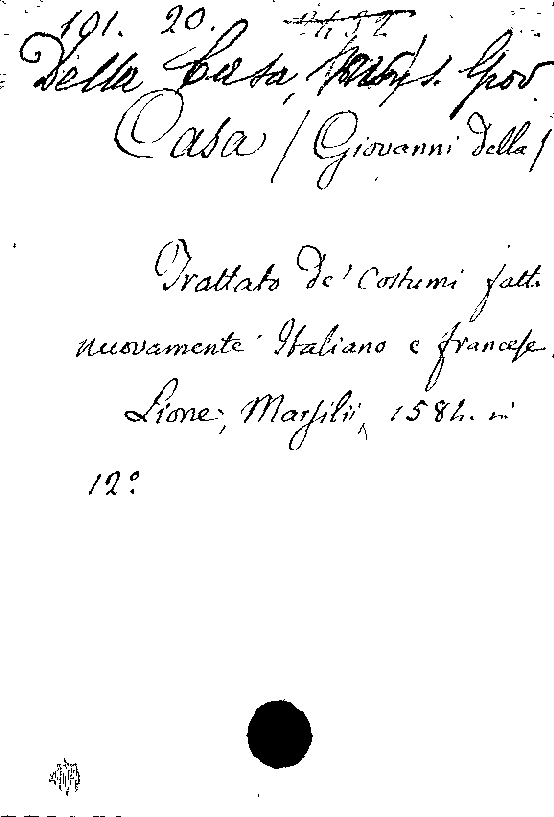 101. 20.
Della Casa, Giov
Casa / Giovanni della /
Trattato de' Costumi fatto
nuovamente Italiano e francese.
Lione, Marsilii, 1584. in
12°